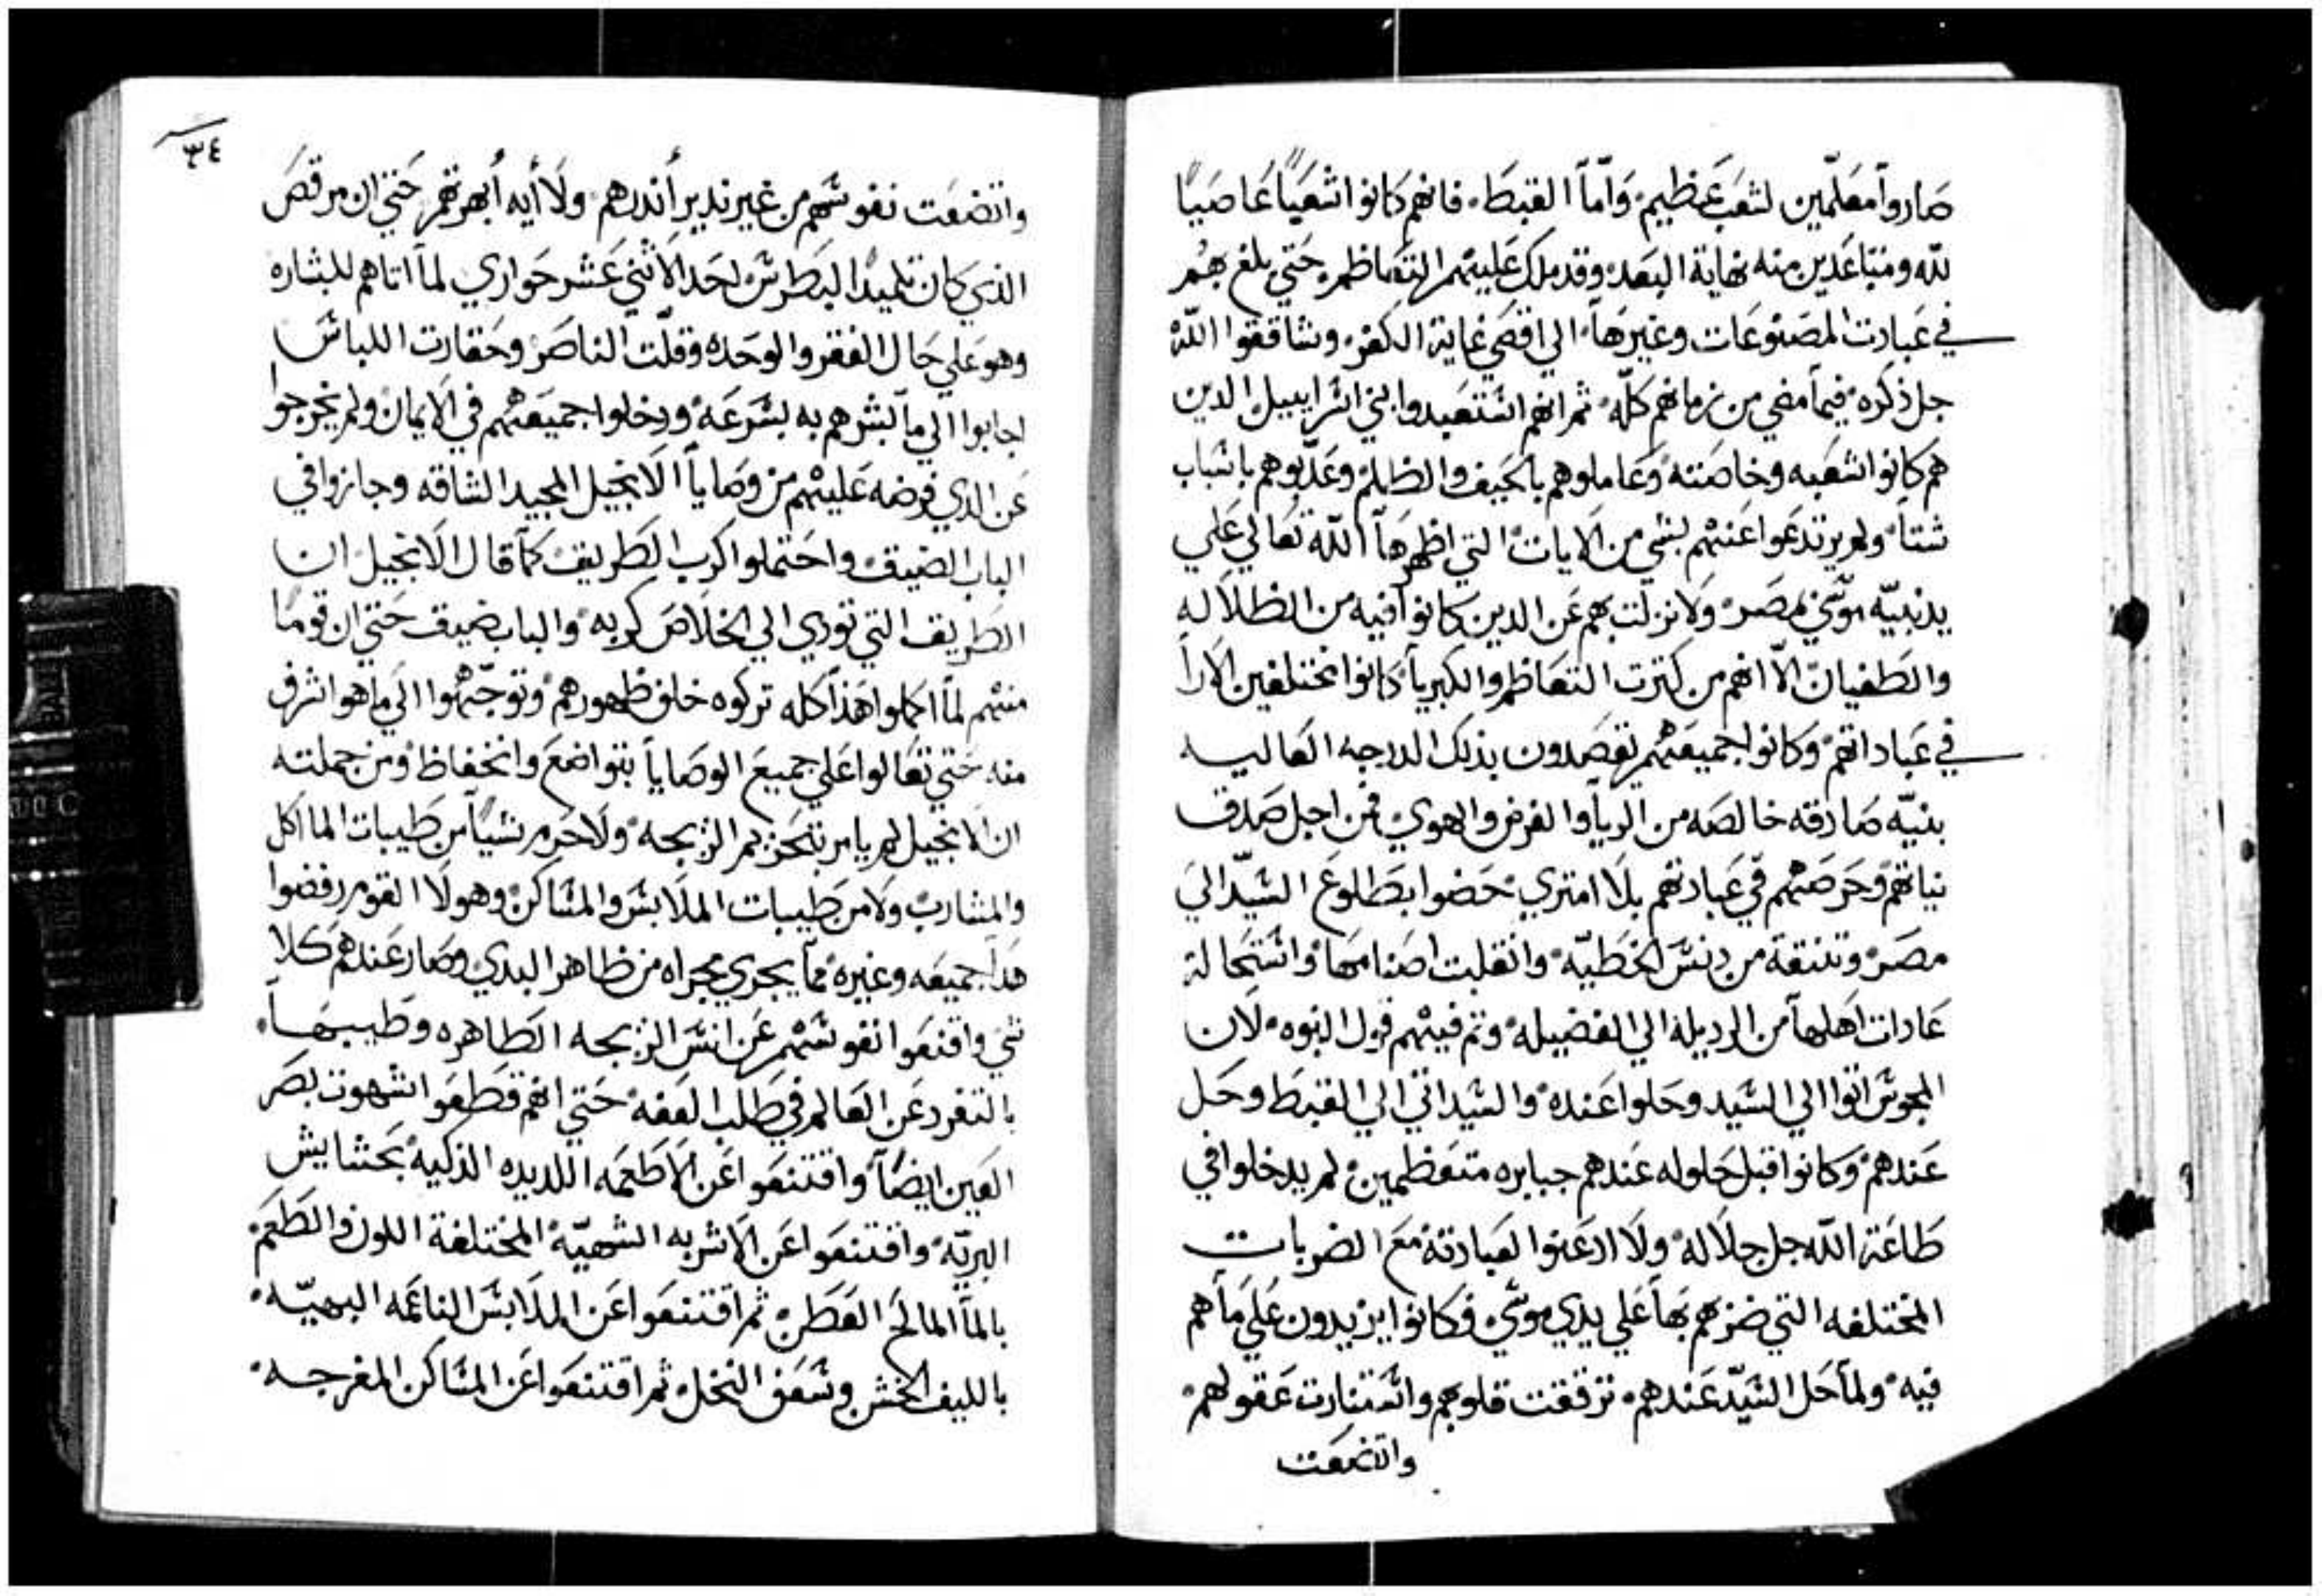 صاروا معلّمين لشعب عظيم وأمّا القبط فانهم كانوا شعبًا عاصيًا
لله ومتباعدين منه نهاية البعد وقد ملك عليهم التعاظم حتي بلغ بهم
في عبادت المصنوعات وغيرها الي اقصي غاية الكفر وشاققوا الله
جل ذكره فيما مضي من زمانهم كلّه ثم انهم استعبدوا بني اسراييل الدين
هم كانوا شعبه وخاصته وعاملوهم بالحيف والظلم وعدّبوهم باسباب
شتا ولم يرتدعوا عنهم بشي من الايات التي اظهرها الله تعالي علي
يد نبيّه موسي بمصر ولا نزلت بهم عن الدين كانوا فيه من الظلاله
والطغيان الّا انهم من كترت التعاظم والكبريا كانوا مختلفين الارا
في عباداتهم وكانوا جميعهم يقصدون بذلك الدرجه العاليه
بنيّه صادقه خالصه من الريا والغرض والهوي فمن اجل صدق
نياتهم وحرصهم في عبادتهم بلا امتري حضوا بطلوع السيّد الي
مصر وتنقة من دنس الخطيّه وانقلبت اصنامها واستحالة
عادات اهلها من الرديلة الي الفضيله وتم فيهم قول النبوه لان
المجوس اتوا الي السيد وحلوا عنده والسيد اتي الي القبط وحل
عندهم وكانوا قبل حلوله عندهم جبابره متعظمين لم يدخلوا في
طاعة الله جل جلاله ولا ادعنوا لعبادته مع الضربات
المختلفه التي ضربهم بها علي يدي موسي وكانوا يزيدون علي ما هم
فيه ولما حل السيّد عندهم ترققت قلوبهم واستنارت عقولهم
واتضعت
٣٤
واتضعت نفوسهم من غير ندير أندرهم ولا أيه أبهرتهم حتي ان مرقص
الذي كان تلميدا لبطرس احد الاثني عشر حواري لما اتاهم للبشاره
وهو علي حال الفقر والوحده وقلّت الناصر وحقارت اللباس
اجابوا الي ما بشرهم به بسرعه ودخلوا جميعهم في الايمان ولم يخرجوا
عن الدي فرضه عليهم من وصايا الانجيل المجيد الشاقه وجازوا في
الباب الضيق واحتملوا كرب الطريق كما قال الانجيل ان
الطريق التي تودي الي الخلاص كربه والباب ضيق حتي ان قومًا
منهم لما اكملوا هذا كله تركوه خلف ظهورهم وتوجّهوا الي ما هو اشرف
منه حتي تعالوا علي جميع الوصايا بتواضع وانخفاظ ومن جملته
ان الانجيل لم يامر بتحريم الزيجه ولا حرم شيًا من طيبات الماكل
والمشارب ولا من طيبات الملابس والمساكن وهولا القوم رفضوا
هدا جميعه وغيره مما يجري مجراه من ظاهر البدي وصار عندهم كلا
شي واقنعوا نفوسهم عن انس الزيجه الطاهره وطيبها
بالتفرد عن العالم في طلب العفه حتي انهم قطعوا شهوت بصر
العين ايضا واقتنعوا عن الاطعمه اللديده الذكيه بحشايش
البريّه واقتنعوا عن الاشربه الشهيّه المختلفة اللون والطعم
بالما المالح القطن ثم اقتنعوا عن الملابس الناعمه البهيّه
بالليف الخشن وسعف النخل ثم اقتنعوا عن المساكن المفرجه